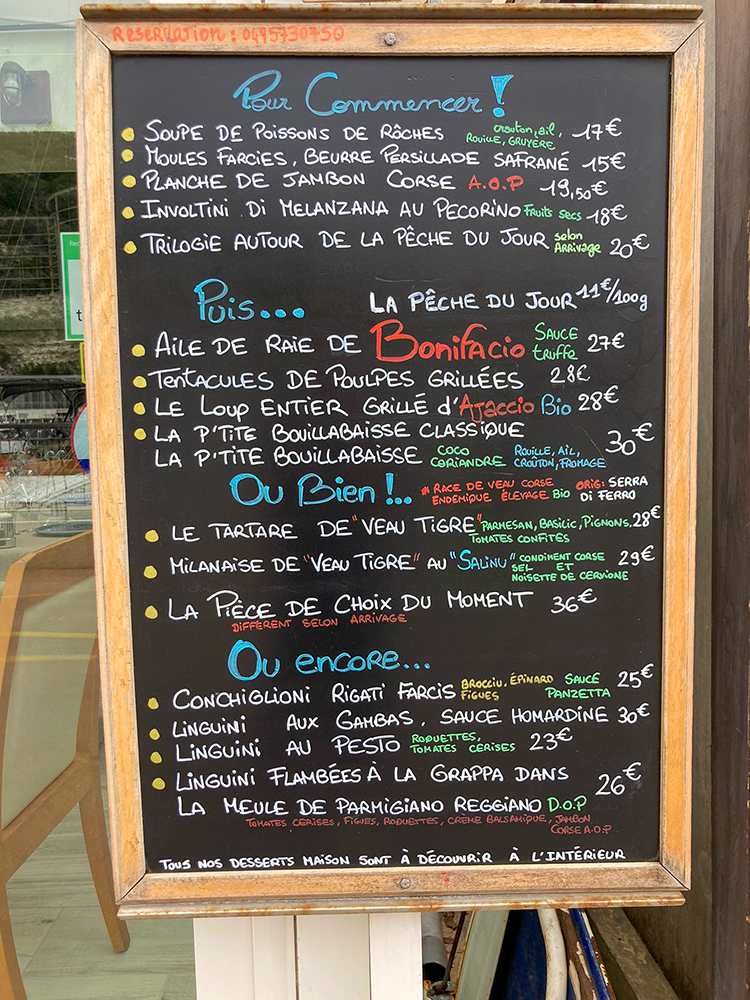 Reservation : 0495730750
Pour Commencer !
SOUPE DE POISSONS DE RÔCHES croûton, ail, ROUILLE, GRUYÈRE 17€
MOULES FARCIES, BEURRE PERSILLADE SAFRANÉ 15€
PLANCHE DE JAMBON CORSE A.O.P 19,50€
INVOLTINI DI MELANZANA AU PECORINO FRUITS SECS 18€
TRILOGIE AUTOUR DE LA PÊCHE DU JOUR selon ARRIVAGE 20€
Puis... LA PÊCHE DU JOUR 11€/100g
AILE DE RAIE DE Bonifacio SAUCE truffe 27€
TENTACULES DE POULPES GRILLÉES 28€
LE LOUP ENTIER GRILLÉ d'AJACCIO Bio 28€
LA P'TITE BOUILLABAISSE CLASSIQUE
LA P'TITE BOUILLABAISSE COCO CORIANDRE ROUILLE, AIL, CROÛTON, FROMAGE 30€
Ou Bien !.. * RACE DE VEAU CORSE ENDÉMIQUE ÉLEVAGE BIO ORIG: SERRA DI FERRO
LE TARTARE DE "VEAU TIGRE" PARMESAN, BASILIC, PIGNONS, TOMATES CONFITÉS 28€
MILANAISE DE "VEAU TIGRE" AU "SALINU" CONDIMENT CORSE SEL ET NOISETTE DE CERVIONE 29€
LA PIÈCE DE CHOIX DU MOMENT 36€
DIFFÉRENT SELON ARRIVAGE
Ou encore...
CONCHIGLIONI RIGATI FARCIS BROCCIU, ÉPINARD FIGUES SAUCE PANZETTA 25€
LINGUINI AUX GAMBAS, SAUCE HOMARDINE 30€
LINGUINI AU PESTO ROQUETTES, TOMATES CERISES 23€
LINGUINI FLAMBÉES À LA GRAPPA DANS
LA MEULE DE PARMIGIANO REGGIANO D.O.P 26€
TOMATES CERISES, FIGUES, ROQUETTES, CRÈME BALSAMIQUE, JAMBON CORSE A.O.P
TOUS NOS DESSERTS MAISON SONT À DÉCOUVRIR À L'INTÉRIEUR